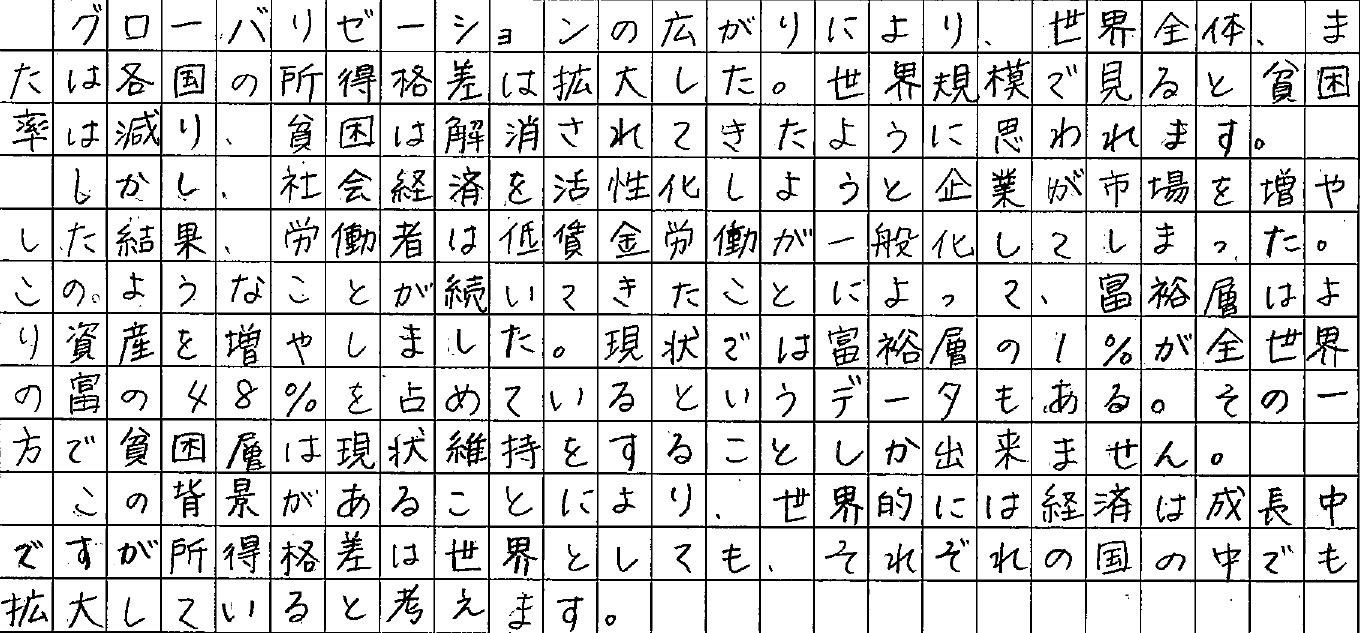 グローバリゼーションの広がりにより、世界全体、ま
たは各国の所得格差は拡大した。世界規模で見ると貧困
率は減り、貧困は解消されてきたように思われます。
しかし、社会経済を活性化しようと企業が市場を増や
した結果、労働者は低賃金労働が一般化してしまった。
この。ようなことが続いてきたことによって、富裕層はよ
り資産を増やしました。現状では富裕層の1%が全世界
の富の48%を占めているというデータもある。その一
方で貧困層は現状維持をすることしか出来ません。
この背景があることにより、世界的には経済は成長中
ですが所得格差は世界としても、それぞれの国の中でも
拡大していると考えます。